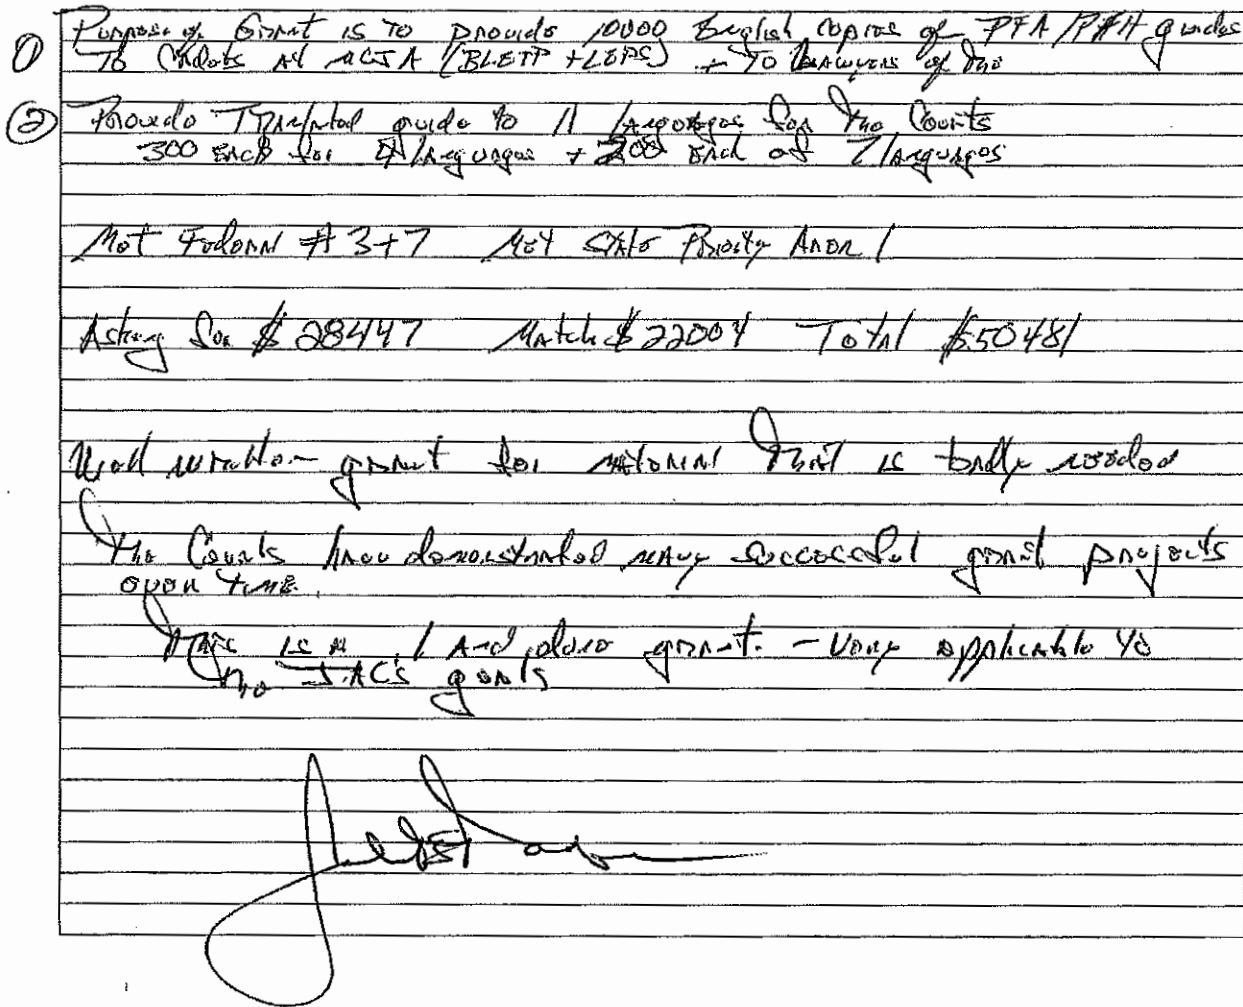 ① Purpose of Grant is to provide 10000 English copies of PFA/PAH guides
To Cadets at MCJA (BLETP + LEPS) + To Lawyers of the
② Provide Translated guide to 11 languages for the Courts
300 each for 4 languages + 200 each of 7 languages
Met Federal # 3+7 Met State Priority Area 1
Asking for $ 28447 Match $ 22004 Total $ 50481
Well written grant for material that is badly needed
The Courts have demonstrated many successful grant projects
over time.
This is a 1 and done grant. - Very applicable to
the JACs goals